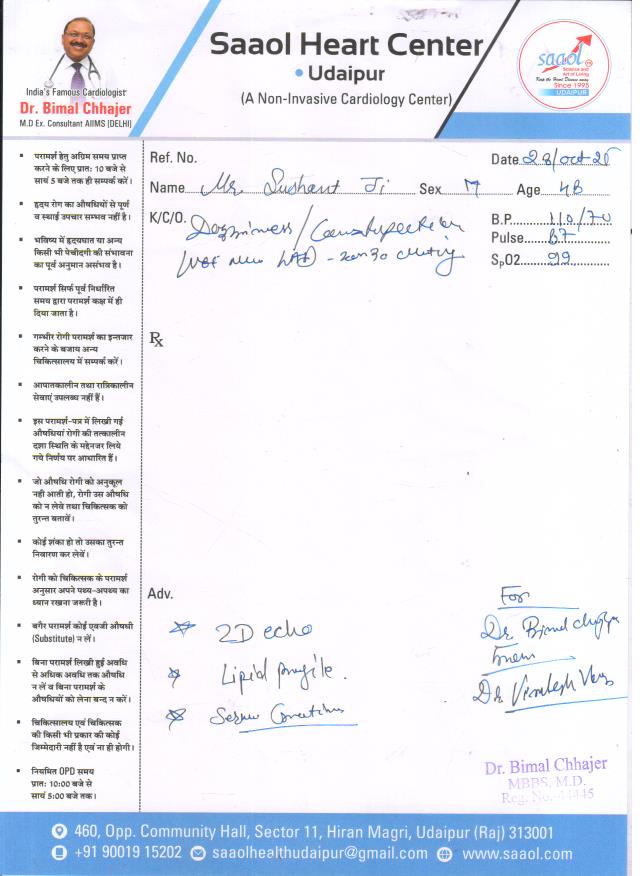 India's Famous Cardiologist
Dr. Bimal Chhajer
M.D Ex. Consultant AIIMS (DELHI)
Saaol Heart Center
• Udaipur
(A Non-Invasive Cardiology Center)
saaol
Science and
Art of Living
Keep the Heart Disease away
Since 1995
UDAIPUR
Ref. No.
Date 28/oct
Name Mr. Sushant Ji Sex M Age 48
K/C/O. /
B.P 110/70
Pulse 87
SpO2 99
Rx
▪ परामर्श हेतु अग्रिम समय प्राप्त
करने के लिए प्रात: 10 बजे से
सायं 5 बजे तक ही सम्पर्क करें।
▪ हृदय रोग का औषधियों से पूर्ण
व स्थाई उपचार सम्भव नहीं है।
▪ भविष्य में हृदयघात या अन्य
किसी भी पेचीदगी की संभावना
का पूर्व अनुमान असंभव है।
▪ परामर्श सिर्फ पूर्व निर्धारित
समय द्वारा परामर्श कक्ष में ही
दिया जाता है।
▪ गम्भीर रोगी परामर्श का इन्तजार
करने के बजाय अन्य
चिकित्सालय में सम्पर्क करें।
▪ आपातकालीन तथा रात्रिकालीन
सेवाएं उपलब्ध नहीं हैं।
▪ इस परामर्श-पत्र में लिखी गई
औषधियां रोगी की तत्कालीन
दशा स्थिति के मद्देनजर लिये
गये निर्णय पर आधारित हैं।
▪ जो औषधि रोगी को अनुकूल
नही आती हो, रोगी उस औषधि
को न लेवे तथा चिकित्सक को
तुरन्त बतावें।
▪ कोई शंका हो तो उसका तुरन्त
निवारण कर लेवें।
▪ रोगी को चिकित्सक के परामर्श
अनुसार अपने पथ्य-अपथ्य का
ध्यान रखना जरूरी है।
▪ बगैर परामर्श कोई एवजी औषधी
(Substitute) न लें।
▪ बिना परामर्श लिखी हुई अवधि
से अधिक अवधि तक औषधि
न लें व बिना परामर्श के
औषधियों को लेना बन्द न करें।
▪ चिकित्सालय एवं चिकित्सक
की किसी भी प्रकार की कोई
जिम्मेदारी नहीं है एवं ना ही होगी।
▪ नियमित OPD समय
प्रात: 10:00 बजे से
सायं 5:00 बजे तक।
Adv.
2D echo
Lipid profile.
For
Dr. Bimal Chhajer
Dr. Vimlesh
Dr. Bimal Chhajer
MBBS, M.D.
Reg. No.-
460, Opp. Community Hall, Sector 11, Hiran Magri, Udaipur (Raj) 313001
+91 90019 15202 saaolhealthudaipur@gmail.com www.saaol.com